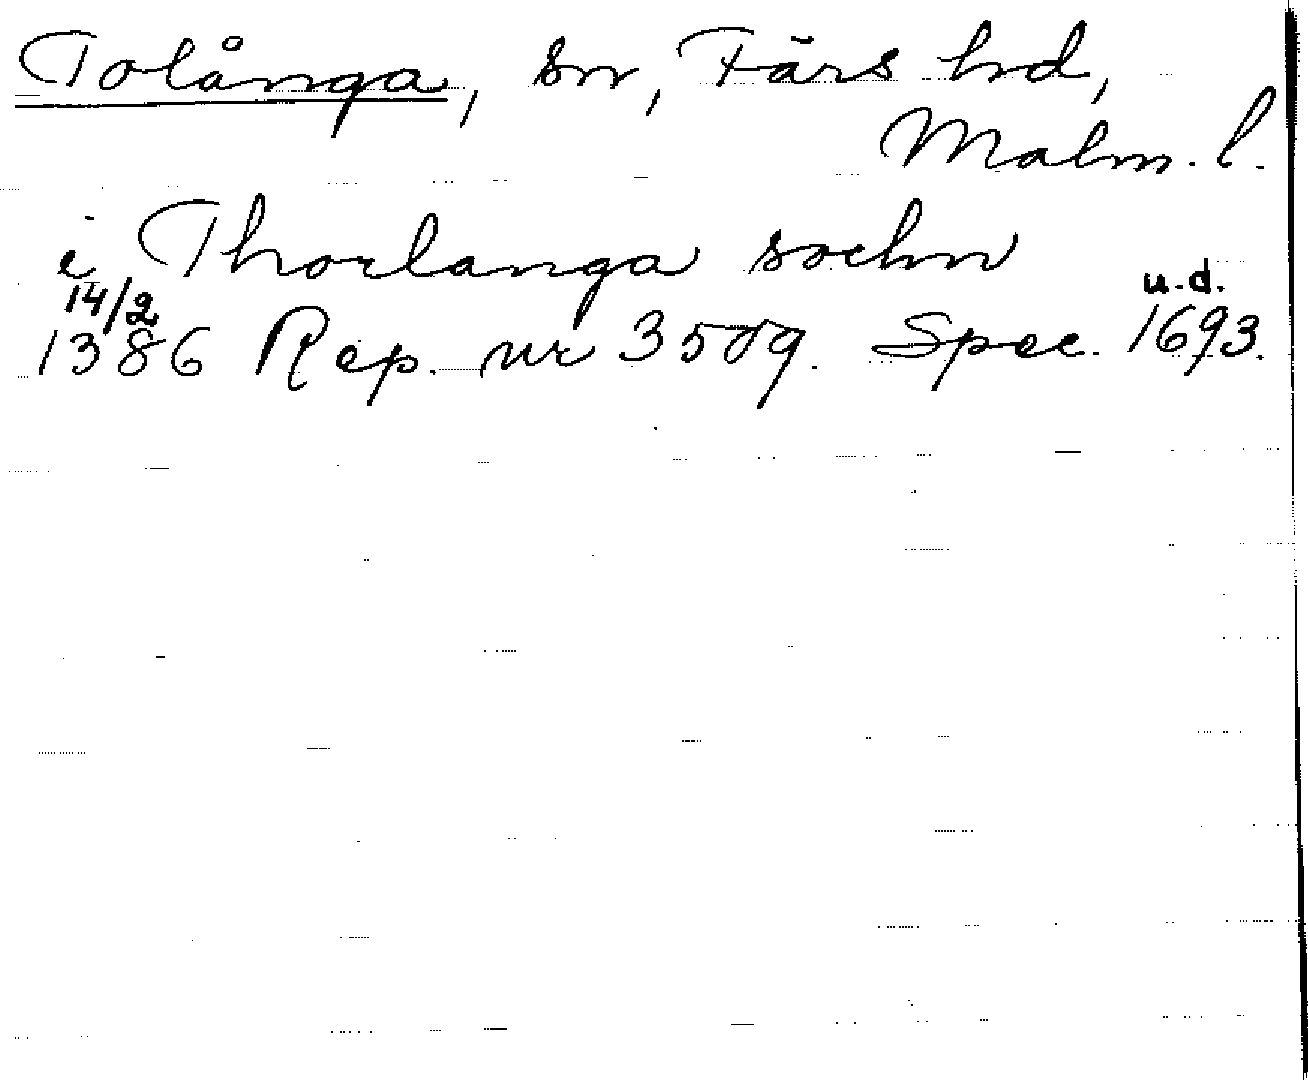 Tolånga, sn, Färs hd,
Malm. l.
i Thorlanga sochn
14/2 u.d.
1386 Rep. nr 3509. Spec. 1693.